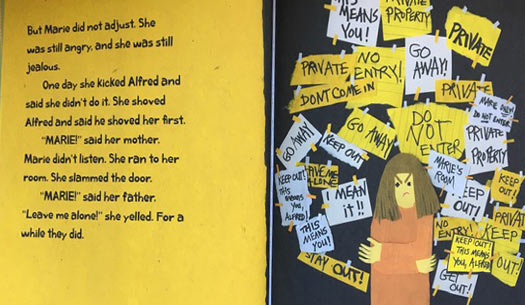 But Marie did not adjust. She
was still angry, and she was still
jealous.
One day she kicked Alfred and
said she didn't do it. She shoved
Alfred and said he shoved her first.
"MARIE!" said her mother.
Marie didn't listen. She ran to her
room. She slammed the door.
"MARIE!" said her father.
"Leave me alone!" she yelled. For a
while they did.
THIS
MEANS
YOU!
PRIVATE
PROPERTY
PRIVATE
GO
AWAY!
PRIVATE
DON'T COME IN
NO
ENTRY!
PRIVATE
MARIE ONLY!
DO NOT ENTER
PRIVATE
PROPERTY
GO
AWAY
GO AWAY
KEEP OUT
DO
NOT
ENTER
MARIE'S
ROOM
KEEP OUT!
THIS
MEANS
YOU,
ALFRED!
ALONE
I MEAN
IT!!
KEEP
OUT!
KEEP
OUT!
THIS MEANS
YOU!
NO
ENTRY!
PRIVATE
KEEP
OUT!
KEEP OUT!
THIS MEANS
YOU, ALFRED
STAY OUT!
GET
OUT!
OUT!